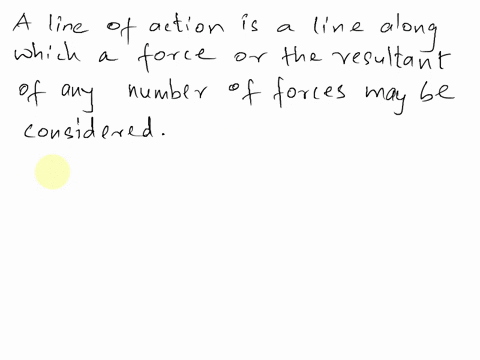 A line of action is a line along
which a force or the resultant
of any number of forces may be
considered.